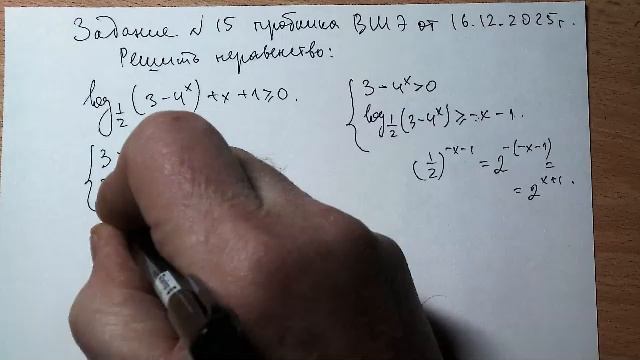 Задание N 15 пробника ВШЭ от 16.12.2025г.
Решить неравенство:
log_{1/2} (3 - 4^x) + x + 1 ≥ 0.
{ 3 -
{ 3 - 4^x > 0
log_{1/2} (3 - 4^x) ≥ - x - 1.
(1/2)^{-x-1} = 2^{-(-x-1)} =
= 2^{x+1}.